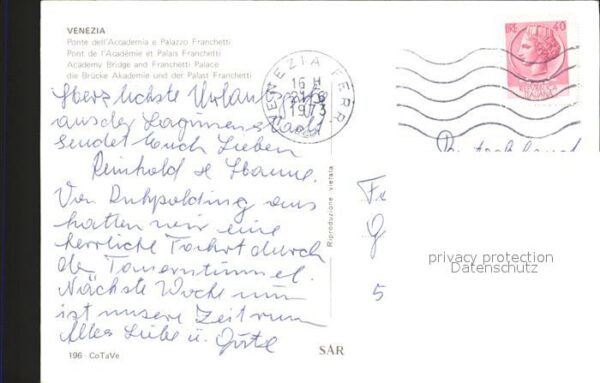 VENEZIA
Ponte dell'Accademia e Palazzo Franchetti
Pont de l'Académie et Palais Franchetti
Academy Bridge and Franchetti Palace
die Brücke Akademie und der Palast Franchetti
Herzlichste Urlaubsgrüße
aus der Lagunenstadt
sendet Euch Lieben
Reinhold u. Hanne.
Von Ruhpolding aus
hatten wir eine
herrliche Fahrt durch
den Tauerntunnel.
Nächste Woche nun
ist unsere Zeit rum
Alles Liebe u. Gute
196 - CoTaVe
SAR
Riproduzione vietata
VENEZIA FERR
16 H
1973
LIRE 40
Deutschland
Fr
G
5
privacy protection
Datenschutz